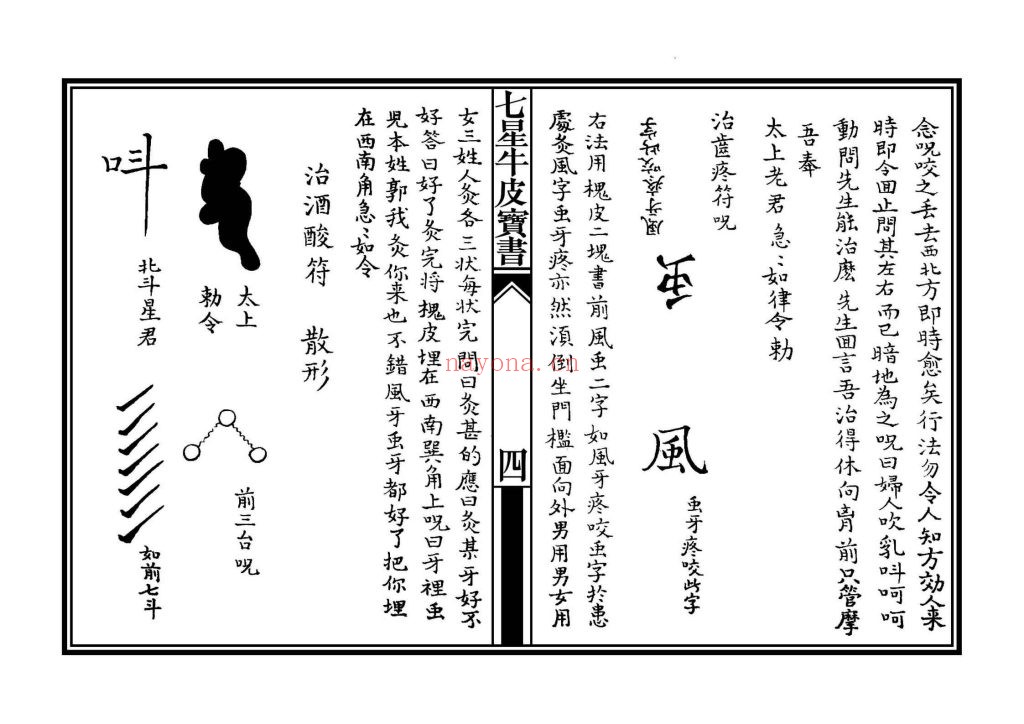 念呪咬之丢去西北方即時愈矣行法勿令人知方効人来
時即令囬止問其左右而已暗地為之呪曰婦人吹乳呌呵呵
動問先生能治麽先生囬言吾治得休向胷前只管摩
吾奉
太上老君急〻如律令勅
治齒疼符呪
風牙疼咬此字
䖝
風
䖝牙疼咬此字
右法用槐皮二塊書前風䖝二字如風牙疼咬䖝字於患
處灸風字䖝牙疼亦然湏倒坐門檻面向外男用男女用
七星牛皮寶書
四
女三姓人灸各三状每状完問曰灸甚的應曰灸某牙好不
好答曰好了灸完將槐皮埋在西南巽角上呪曰牙裡䖝
児本姓郭我灸你来也不錯風牙䖝牙都好了把你埋
在西南角急〻如令
治酒酸符
散形
太上
勅令
前三台呪
呌
北斗星君
如前七斗
nayona.cn